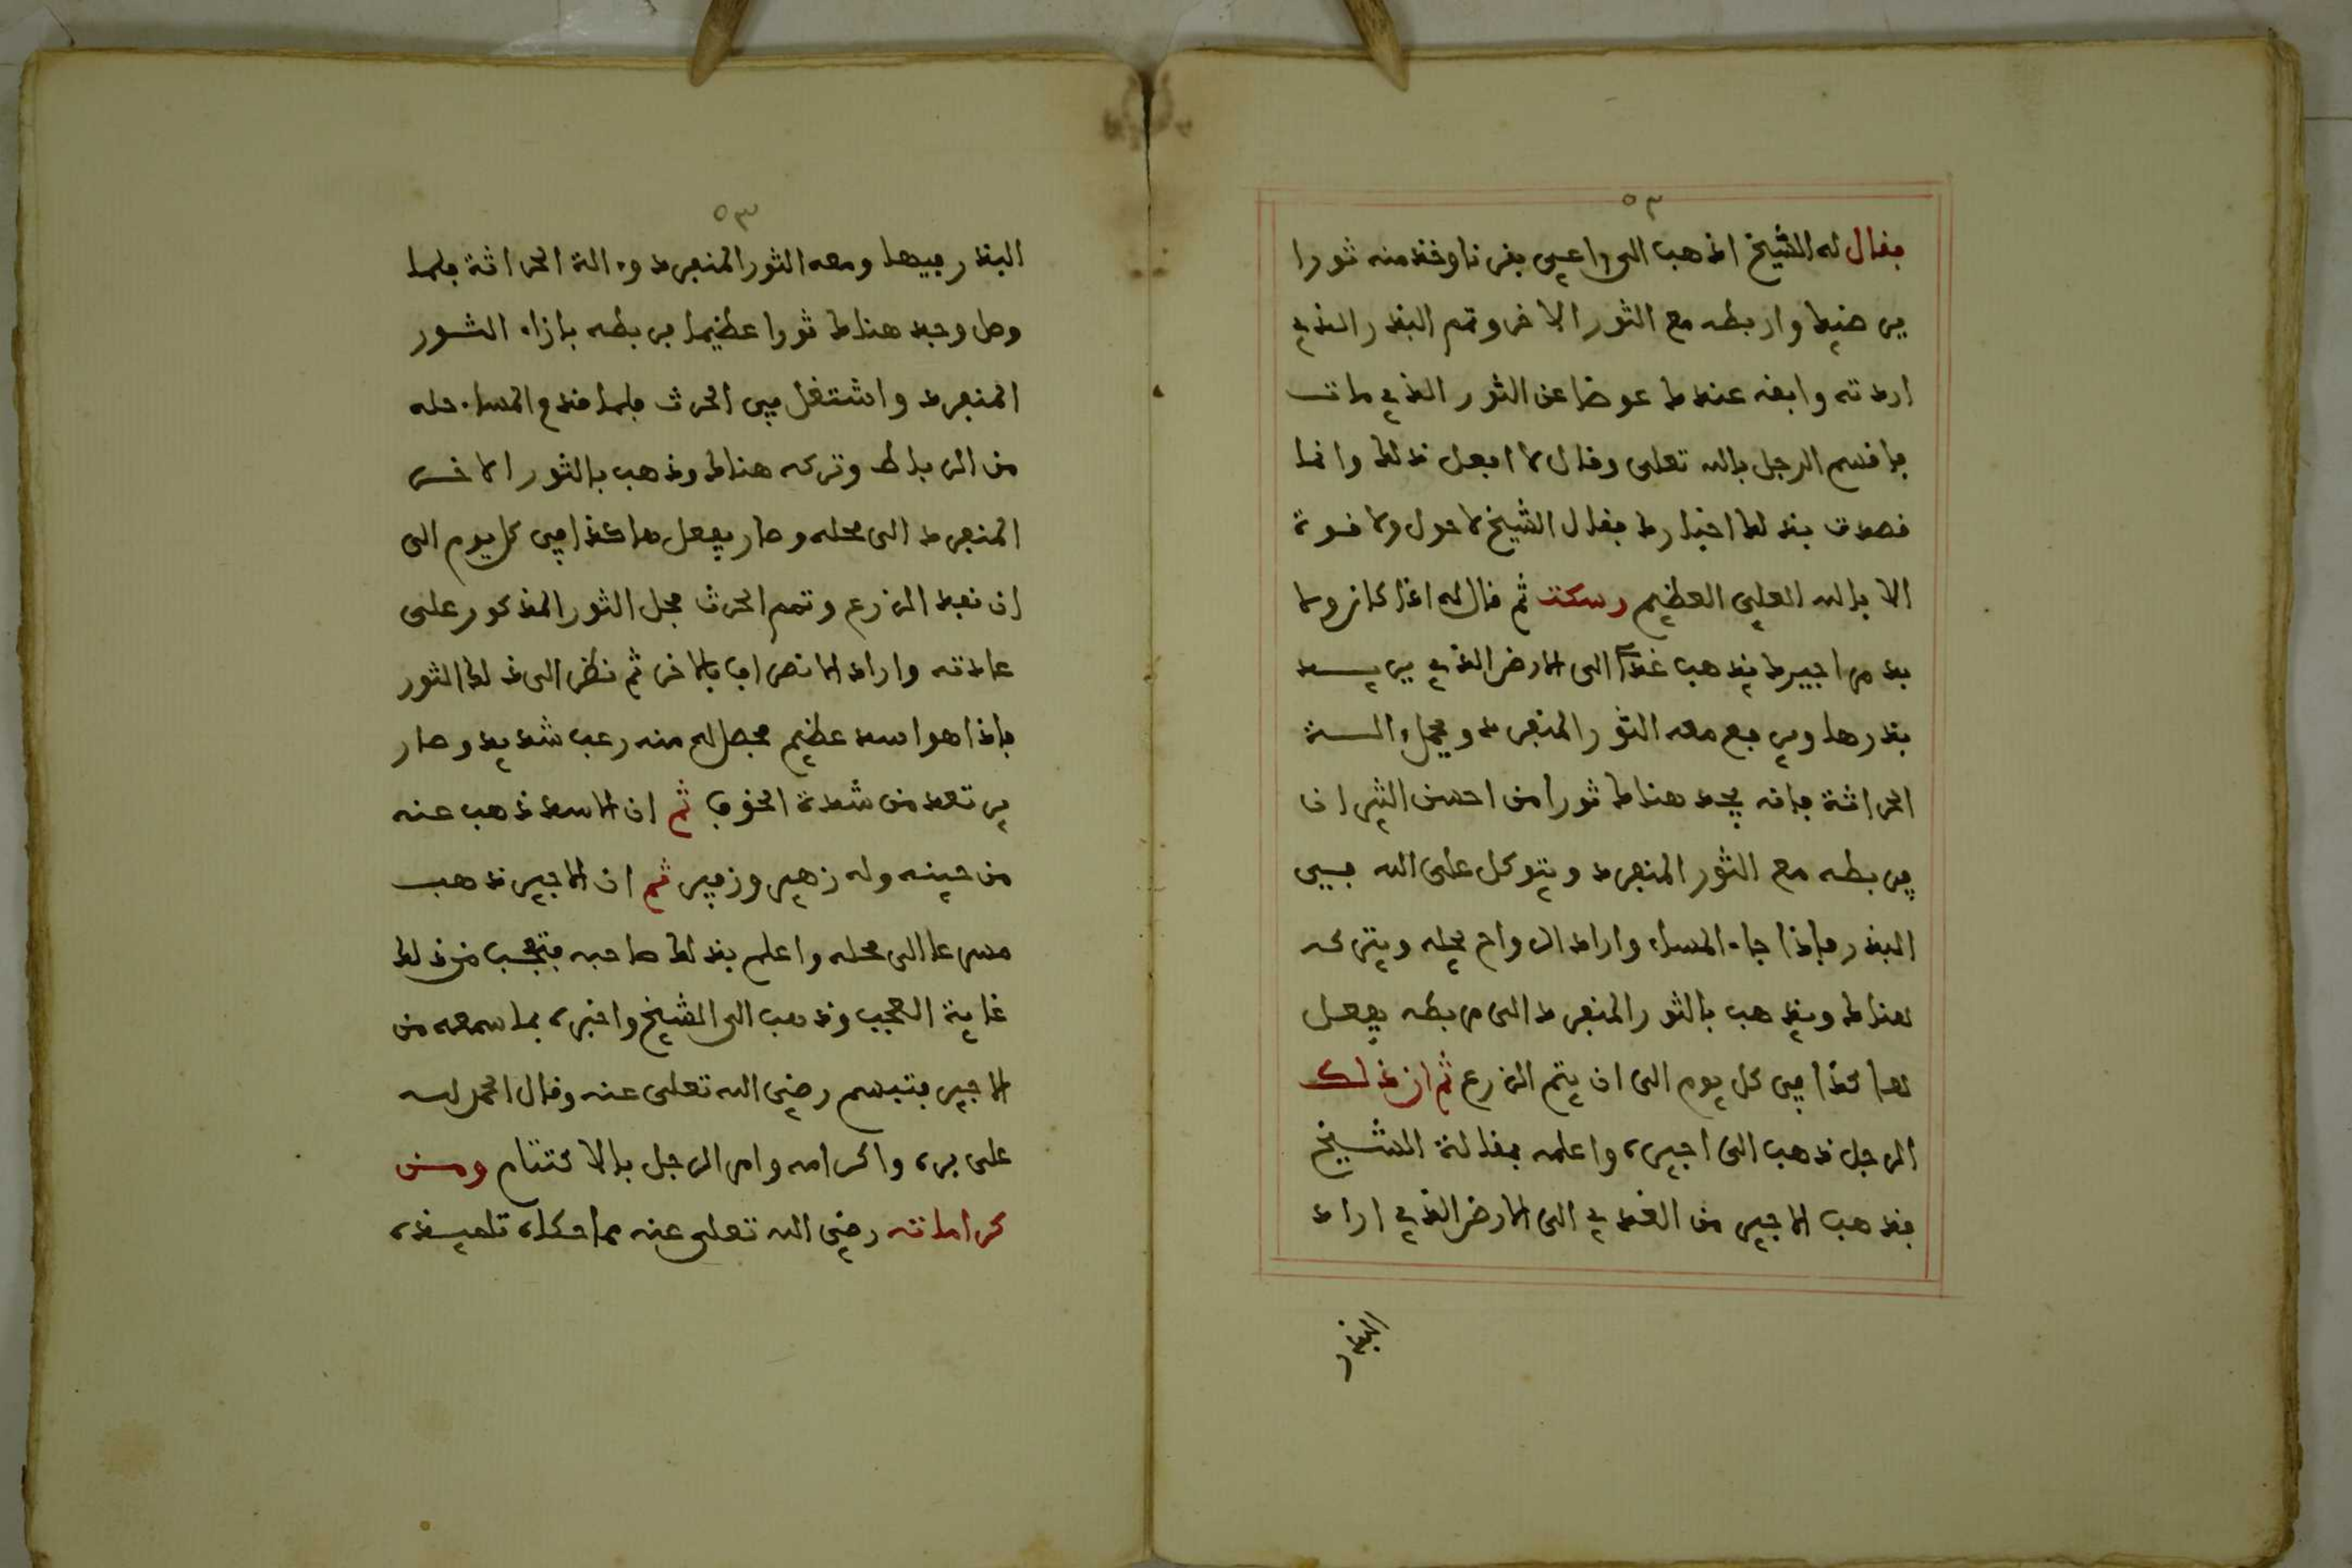 ٥٣
فقال له الشيخ اذهب الى راعي بقرنا وخذ منه ثورا
يرضيك واربطه مع الثور الاخر وتمم البذر الذي
اردته وابقه عندك عوضا عن الثور الذي مات
فاقسم الرجل بالله تعلى وقال لا افعل ذلك وانما
قصدت بذلك اخبارك فقال الشيخ لا حول ولا قوة
الا بالله العلي العظيم وسكت ثم قال له اذا كان ولا
بد مر اجيرك يذهب غدا الى الارض الذي يريد
بذرها ويرفع معه الثور المنفرد ويحمل ءالة
الحراثة فانه يجد هناك ثورا من احسن الثيران
يربطه مع الثور المنفرد ويتوكل على الله في
البذر فاذا جاء المساء واراد الرواح يحله ويتركه
هناك ويذهب بالثور المنفرد الى مربطه يفعل
هاكذا في كل يوم الى ان يتم الزرع ثم ان ذلك
الرجل ذهب الى اجيره واعلمه بمقالة الشيخ
فذهب الاجير من الغد ي الى الارض الذي اراد
البذر
٥٣
البذر فيها ومعه الثور المنفرد وءالة الحراثة فلما
وصل وجد هناك ثورا عظيما فربطه بازاء الثور
المنفرد واشتغل في الحرث فلما قدم المساء حله
من الرباط وتركه هناك وذهب بالثور الاخر
المنفرد الى محله وصار يفعل هاكذا في كل يوم الى
ان نفد الزرع وتمم الحرث فحل الثور المذكور على
عادته واراد الانصراف بالاخر ثم نظر الى ذلك الثور
فاذا هو اسد عظيم فحصل له منه رعب شديد وصار
يرتعد من شدة الخوف ثم ان الاسد ذهب عنه
من حينه وله زهير وزفير ثم ان الاجير ذهب
مسرعا الى محله واعلم بذلك صاحبه فتعجب من ذلك
غاية العجب وذهب الى الشيخ واخبره بما سمعه من
الاجير فتبسم رضي الله تعلى عنه وقال الحمد لله
على بره واكرامه وامر الرجل بالاكتتام ومن
كراماته رضي الله تعلى عنه ما حكاه تلميذه